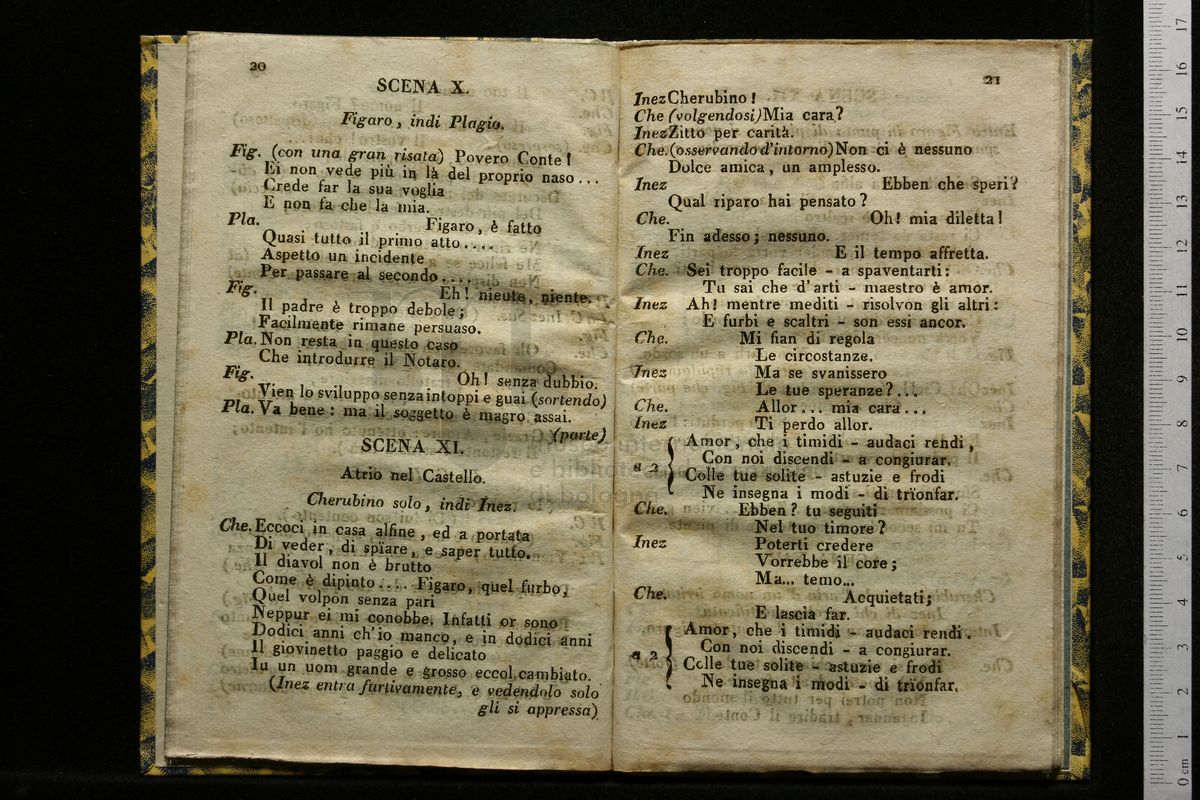 20
SCENA X.
Figaro, indi Plagio.
Fig. (con una gran risata) Povero Conte!
Ei non vede più in là del proprio naso...
Crede far la sua voglia
E non fa che la mia.
Pla. Figaro, è fatto
Quasi tutto il primo atto....
Aspetto un incidente
Per passare al secondo....
Fig. Eh! niente, niente.
Il padre è troppo debole;
Facilmente rimane persuaso.
Pla. Non resta in questo caso
Che introdurre il Notaro.
Fig. Oh! senza dubbio.
Vien lo sviluppo senza intoppi e guai (sortendo)
Pla. Va bene: ma il soggetto è magro assai.
(parte)
SCENA XI.
Atrio nel Castello.
Cherubino solo, indi Inez.
Che. Eccoci in casa alfine, ed a portata
Di veder, di spïare, e saper tutto.
Il diavol non è brutto
Come è dipinto.... Figaro, quel furbo,
Quel volpon senza pari
Neppur ei mi conobbe. Infatti or sono
Dodici anni ch'io manco, e in dodici anni
Il giovinetto paggio e delicato
Iu un uom grande e grosso eccol cambiato.
(Inez entra furtivamente, e vedendolo solo
gli si appressa)
21
Inez Cherubino!
Che (volgendosi) Mia cara?
Inez Zitto per carità.
Che. (osservando d'intorno) Non ci è nessuno
Dolce amica, un amplesso.
Inez Ebben che speri?
Qual riparo hai pensato?
Che. Oh! mia diletta!
Fin adesso; nessuno.
Inez E il tempo affretta.
Che. Sei troppo facile - a spaventarti:
Tu sai che d'arti - maestro è amor.
Inez Ah! mentre mediti - risolvon gli altri:
E furbi e scaltri - son essi ancor.
Che. Mi fian di regola
Le circostanze.
Inez Ma se svanissero
Le tue speranze?...
Che. Allor... mia cara...
Inez Ti perdo allor.
Amor, che i timidi - audaci rendi,
Con noi discendi - a congiurar.
a 2 Colle tue solite - astuzie e frodi
Ne insegna i modi - di trïonfar.
Che. Ebben? tu seguiti
Nel tuo timore?
Inez Poterti credere
Vorrebbe il core;
Ma... temo...
Che. Acquietati;
E lascia far.
Amor, che i timidi - audaci rendi,
Con noi discendi - a congiurar.
a 2 Colle tue solite - astuzie e frodi
Ne insegna i modi - di trïonfar.